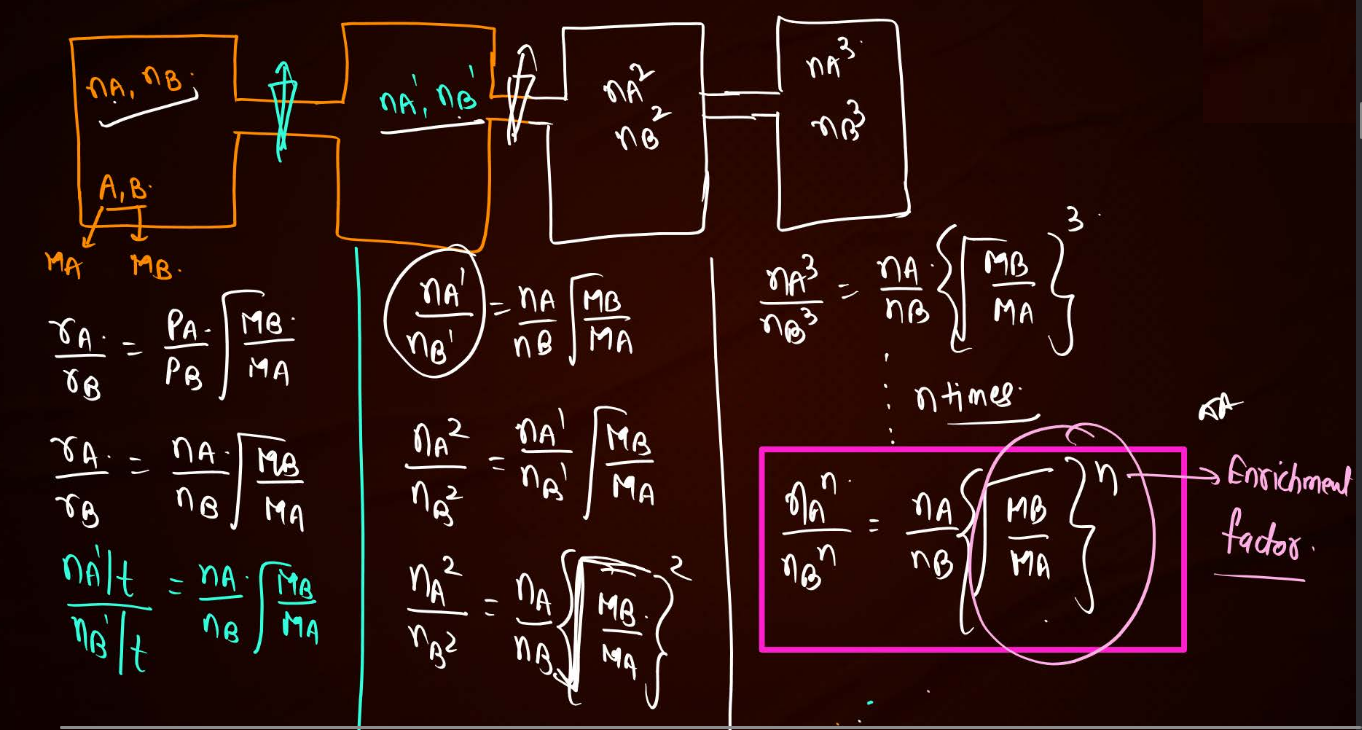 nA, nB.
nA', nB'
nA²
nB²
nA³
nB³
A, B.
MA MB.
rA/rB = PA/PB √(MB/MA)
rA/rB = nA/nB √(MB/MA)
(nA'/t)/(nB'/t) = nA/nB √(MB/MA)
nA'/nB' = nA/nB √(MB/MA)
nA²/nB² = nA'/nB' √(MB/MA)
nA²/nB² = nA/nB {√(MB/MA)}²
nA³/nB³ = nA/nB {√(MB/MA)}³
n times.
nAⁿ/nBⁿ = nA/nB {√(MB/MA)}ⁿ
Enrichment
factor.